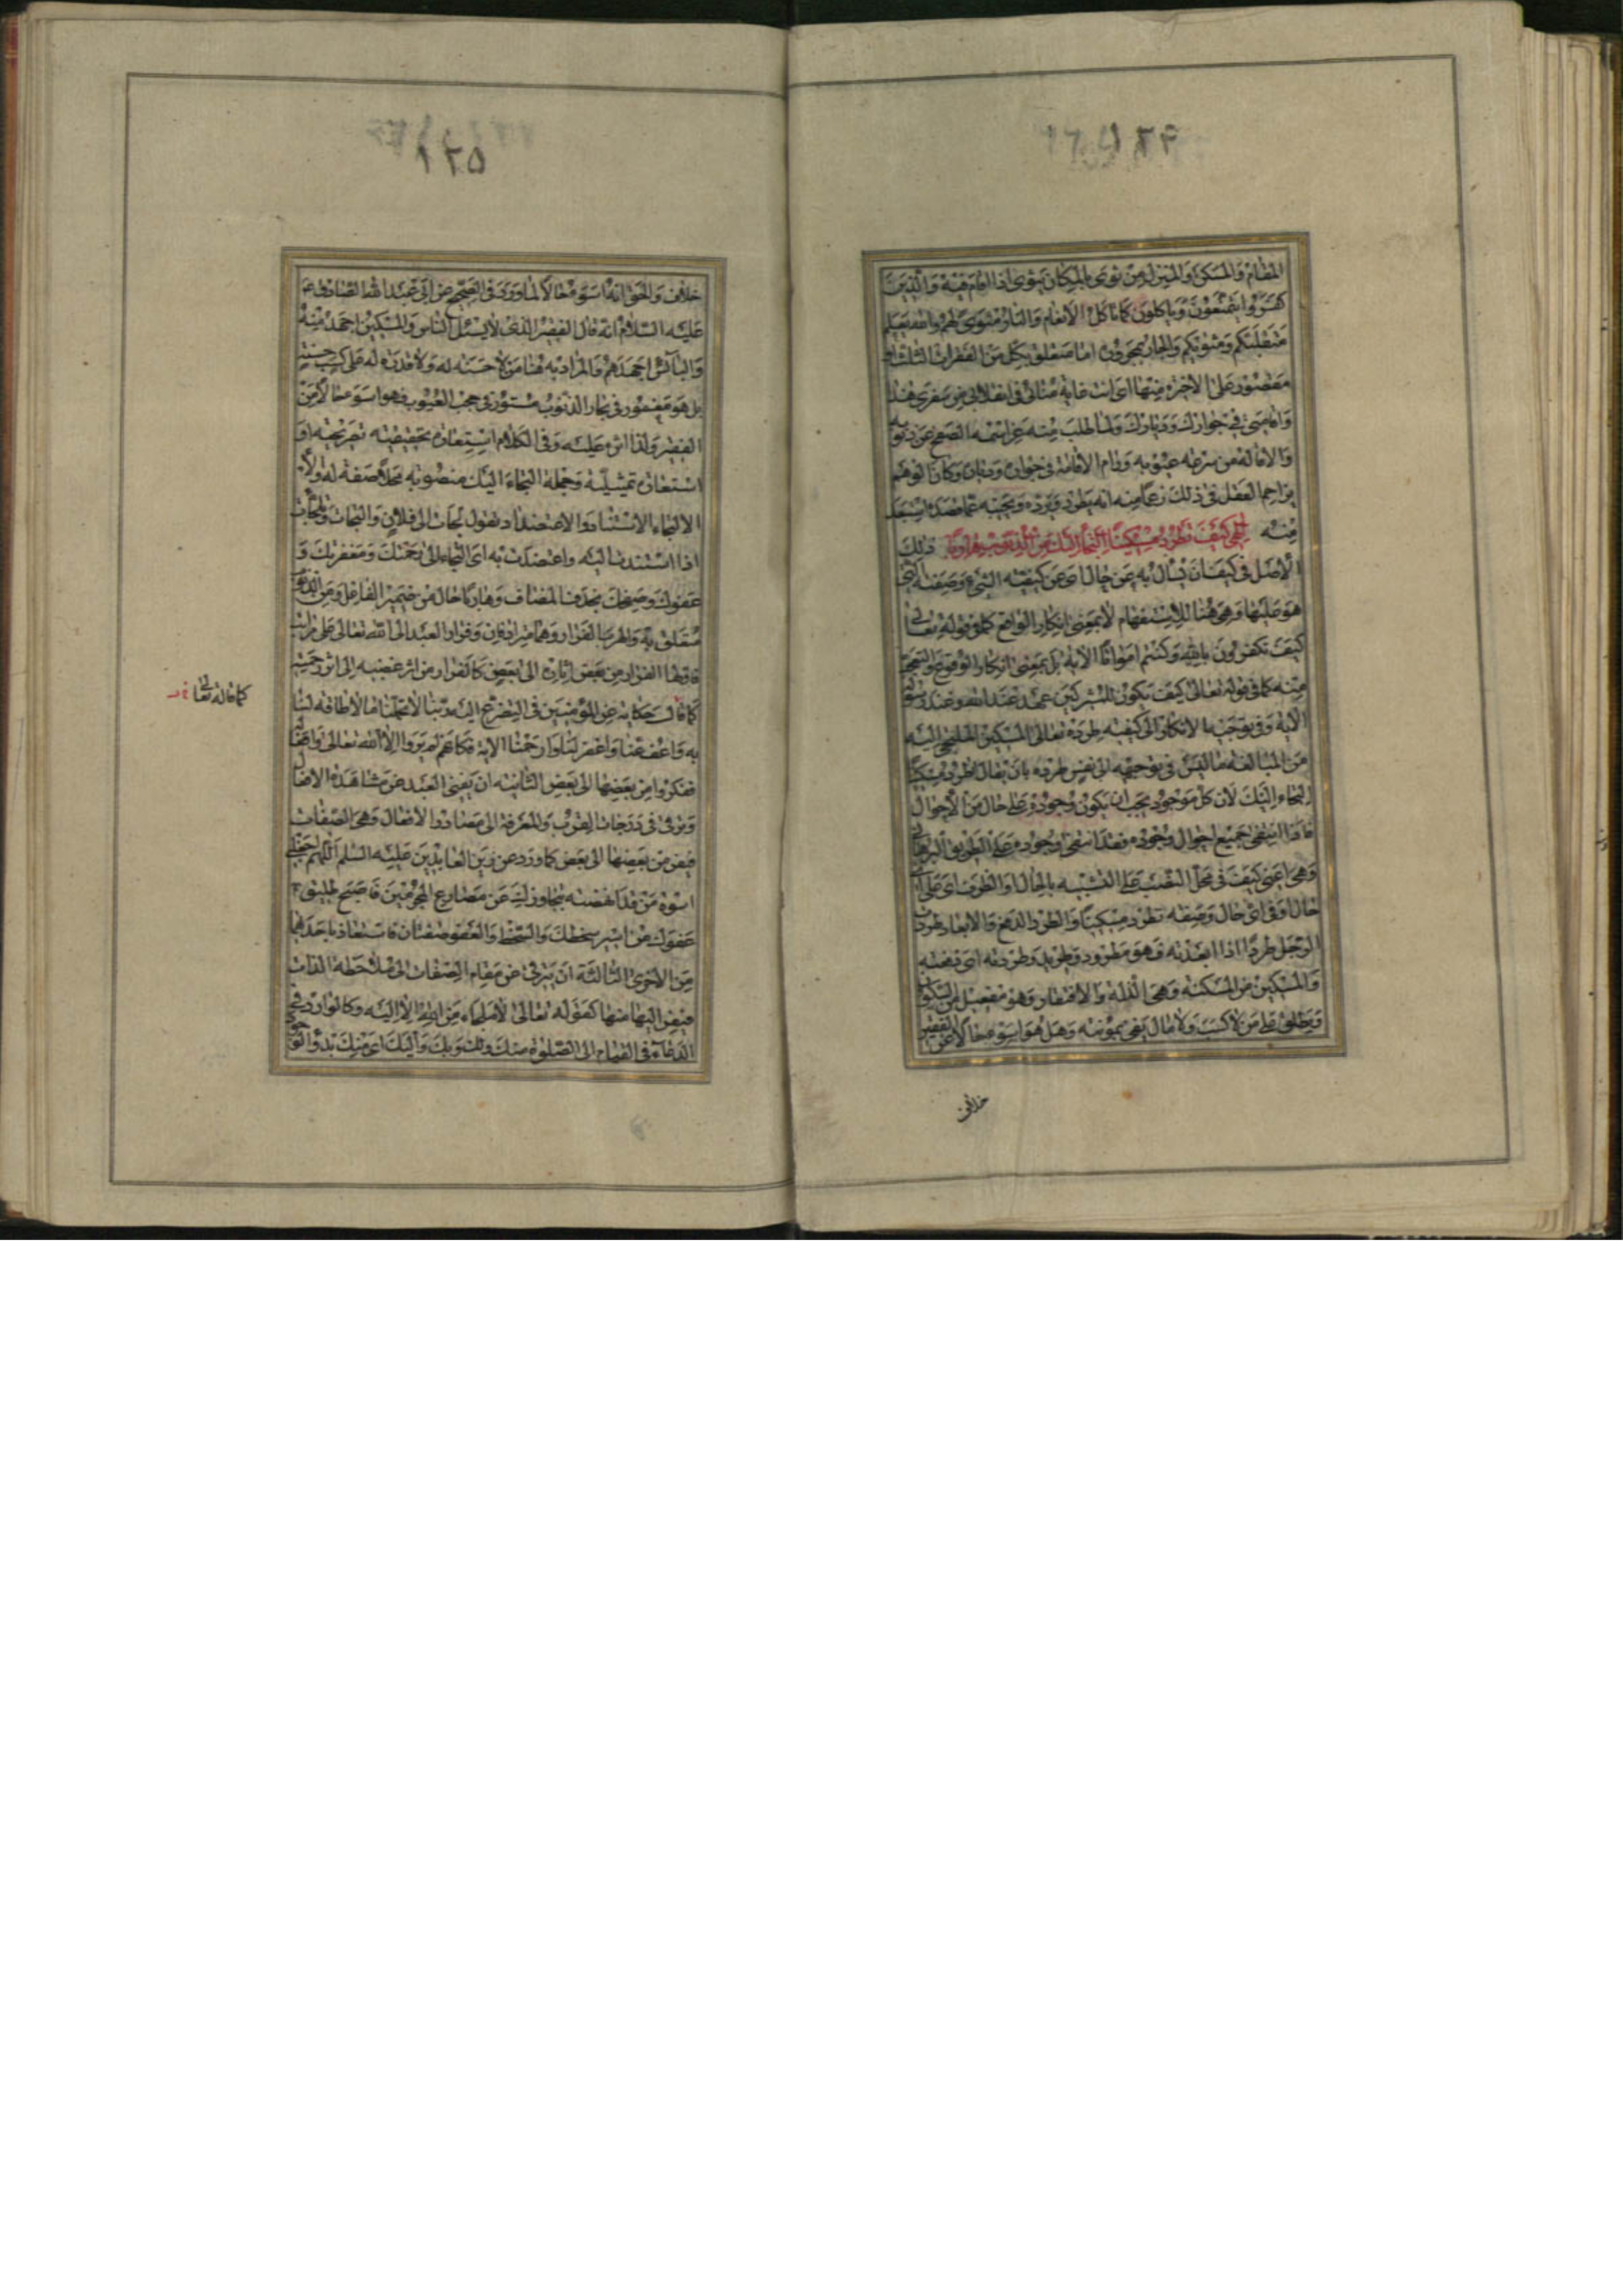 ١٢٩
المقام والمسكن والمنزل من ثوى بالمكان يثوى اذا اقام فيه والذين
كفروا يتمتعون وياكلون كما تاكل الانعام والنار مثوى لهم والله يعلم
متقلبكم ومثويكم والجار والمجرور اما متعلق بكل من الفقرات الثلث او
مقصور على الاخرة منها اى انت غاية منائى فى انقلابى من سفرى هذا
واقامتى فى جوارك وديارك ولما طلب منه عز اسمه الصفح عن ذنوبه
والاقالة من صرعة عيوبه ورام الاقامة فى جواره وكان الوهم
يزاحم العقل فى ذلك زعما منه انه يطرد ويرده ويخيبه عما قصده استبعد
منه الهى كيف تطرد مسكينا التجا اليك من الذنوب هاربا ذلك
الاصل فى كيف ان يسأل به عن حال اى عن كيفيته الشىء وصفته التى
هو عليها وهى هنا للاستفهام لا بمعنى انكار الواقع كما فى قوله تعالى
كيف تكفرون بالله وكنتم امواتا الاية بل بمعنى انكار الوقوع والتعجب
منه كما فى قوله تعالى كيف يكون للمشركين عهد عند الله وعند رسوله
الاية وفى توجيه الانكار الى كيفية طرده تعالى المسكين الملتجى اليه
من المبالغة ما ليس فى توجيهه الى نفس طرده بان يقال اتطرد مسكينا
التجاء اليك لان كل موجود يجب ان يكون وجوده على حال من الاحوال
فاذا انتفى جميع احوال وجوده فقد انتفى وجوده على الطريق البرهانى
وهى اعنى كيف فى محل النصب على التشبيه بالحال او الظرف اى على اى
حال او فى اى حال وصفة تطرد مسكينا والطرد الدفع والابعاد طردت
الرجل طردا اذا ابعدته فهو مطرود وطريد وطردته اى دفعته
والمسكين من المسكنة وهى الذلة والافتقار وهو مفعيل من السكون
ويطلق على من لا كسب ولا مال يفى بمؤنته وهل هو اسوء حالا من الفقير
خلاف
١٢٥
خلاف والحق انه اسوء حالا لما ورد فى الصحيح عن ابى عبد الله الصادق
عليه السلام انه قال الفقير الذى لا يسئل الناس والمسكين اجهد منه
والبائس اجهدهم والمراد به هنا من لا حسنة له ولا قدرة له على كسب حسنة
بل هو مغمور فى بحار الذنوب مستور فى حجب العيوب فهو اسوء حالا من
الفقير ولذا اثره عليه وفى الكلام استعارة تحقيقية تصريحية او
استعارة تمثيلية وجملة التجاء اليك منصوبة محلا صفة له ولا
الالتجاء الاستناد والاعتضاد تقول لجات الى فلان والتجات وتلجات
اذا استندت اليه واعتضدت به اى التجاء الى رحمتك ومغفرتك و
عفوك وصفحك بحذف المضاف وهاربا حال من ضمير الفاعل ومن الذنوب
متعلق به والهرب الفرار وهما مترادفان وفرار العبد الى الله تعالى على مراتب
فاولها الفرار من بعض اثاره الى بعض كالفرار من اثر غضبه الى اثر رحمته
كما قال حكاية عن المؤمنين فى التضرع اليه ربنا لا تحملنا ما لا طاقة لنا
به واعف عنا واغفر لنا وارحمنا الاية فكانهم لم يروا الا الله تعالى وافعاله
ففروا من بعضها الى بعض الثانية ان يفنى العبد عن مشاهدة الافعال
ويرقى فى درجات القرب والمعرفة الى مصادر الافعال وهى الصفات
فيفر من بعضها الى بعض كما ورد عن زين العابدين عليه السلم اللهم اجعلنى
اسوة من قد انهضته بتجاوزك عن مصارع المجرمين فاصبح طليق
عفوك من اسر سخطك والسخط والعفو صفتان فاستعاذ باحدهما
من الاخرى الثالثة ان يترقى عن مقام الصفات الى ملاحظة الذات
فيفر اليها منها كقوله تعالى لا ملجاء من الله الا اليه وكالوارد فى
الدعاء فى القيام الى الصلوة منك ولك وبك واليك اى منك بدؤ
كما قاله تعالى